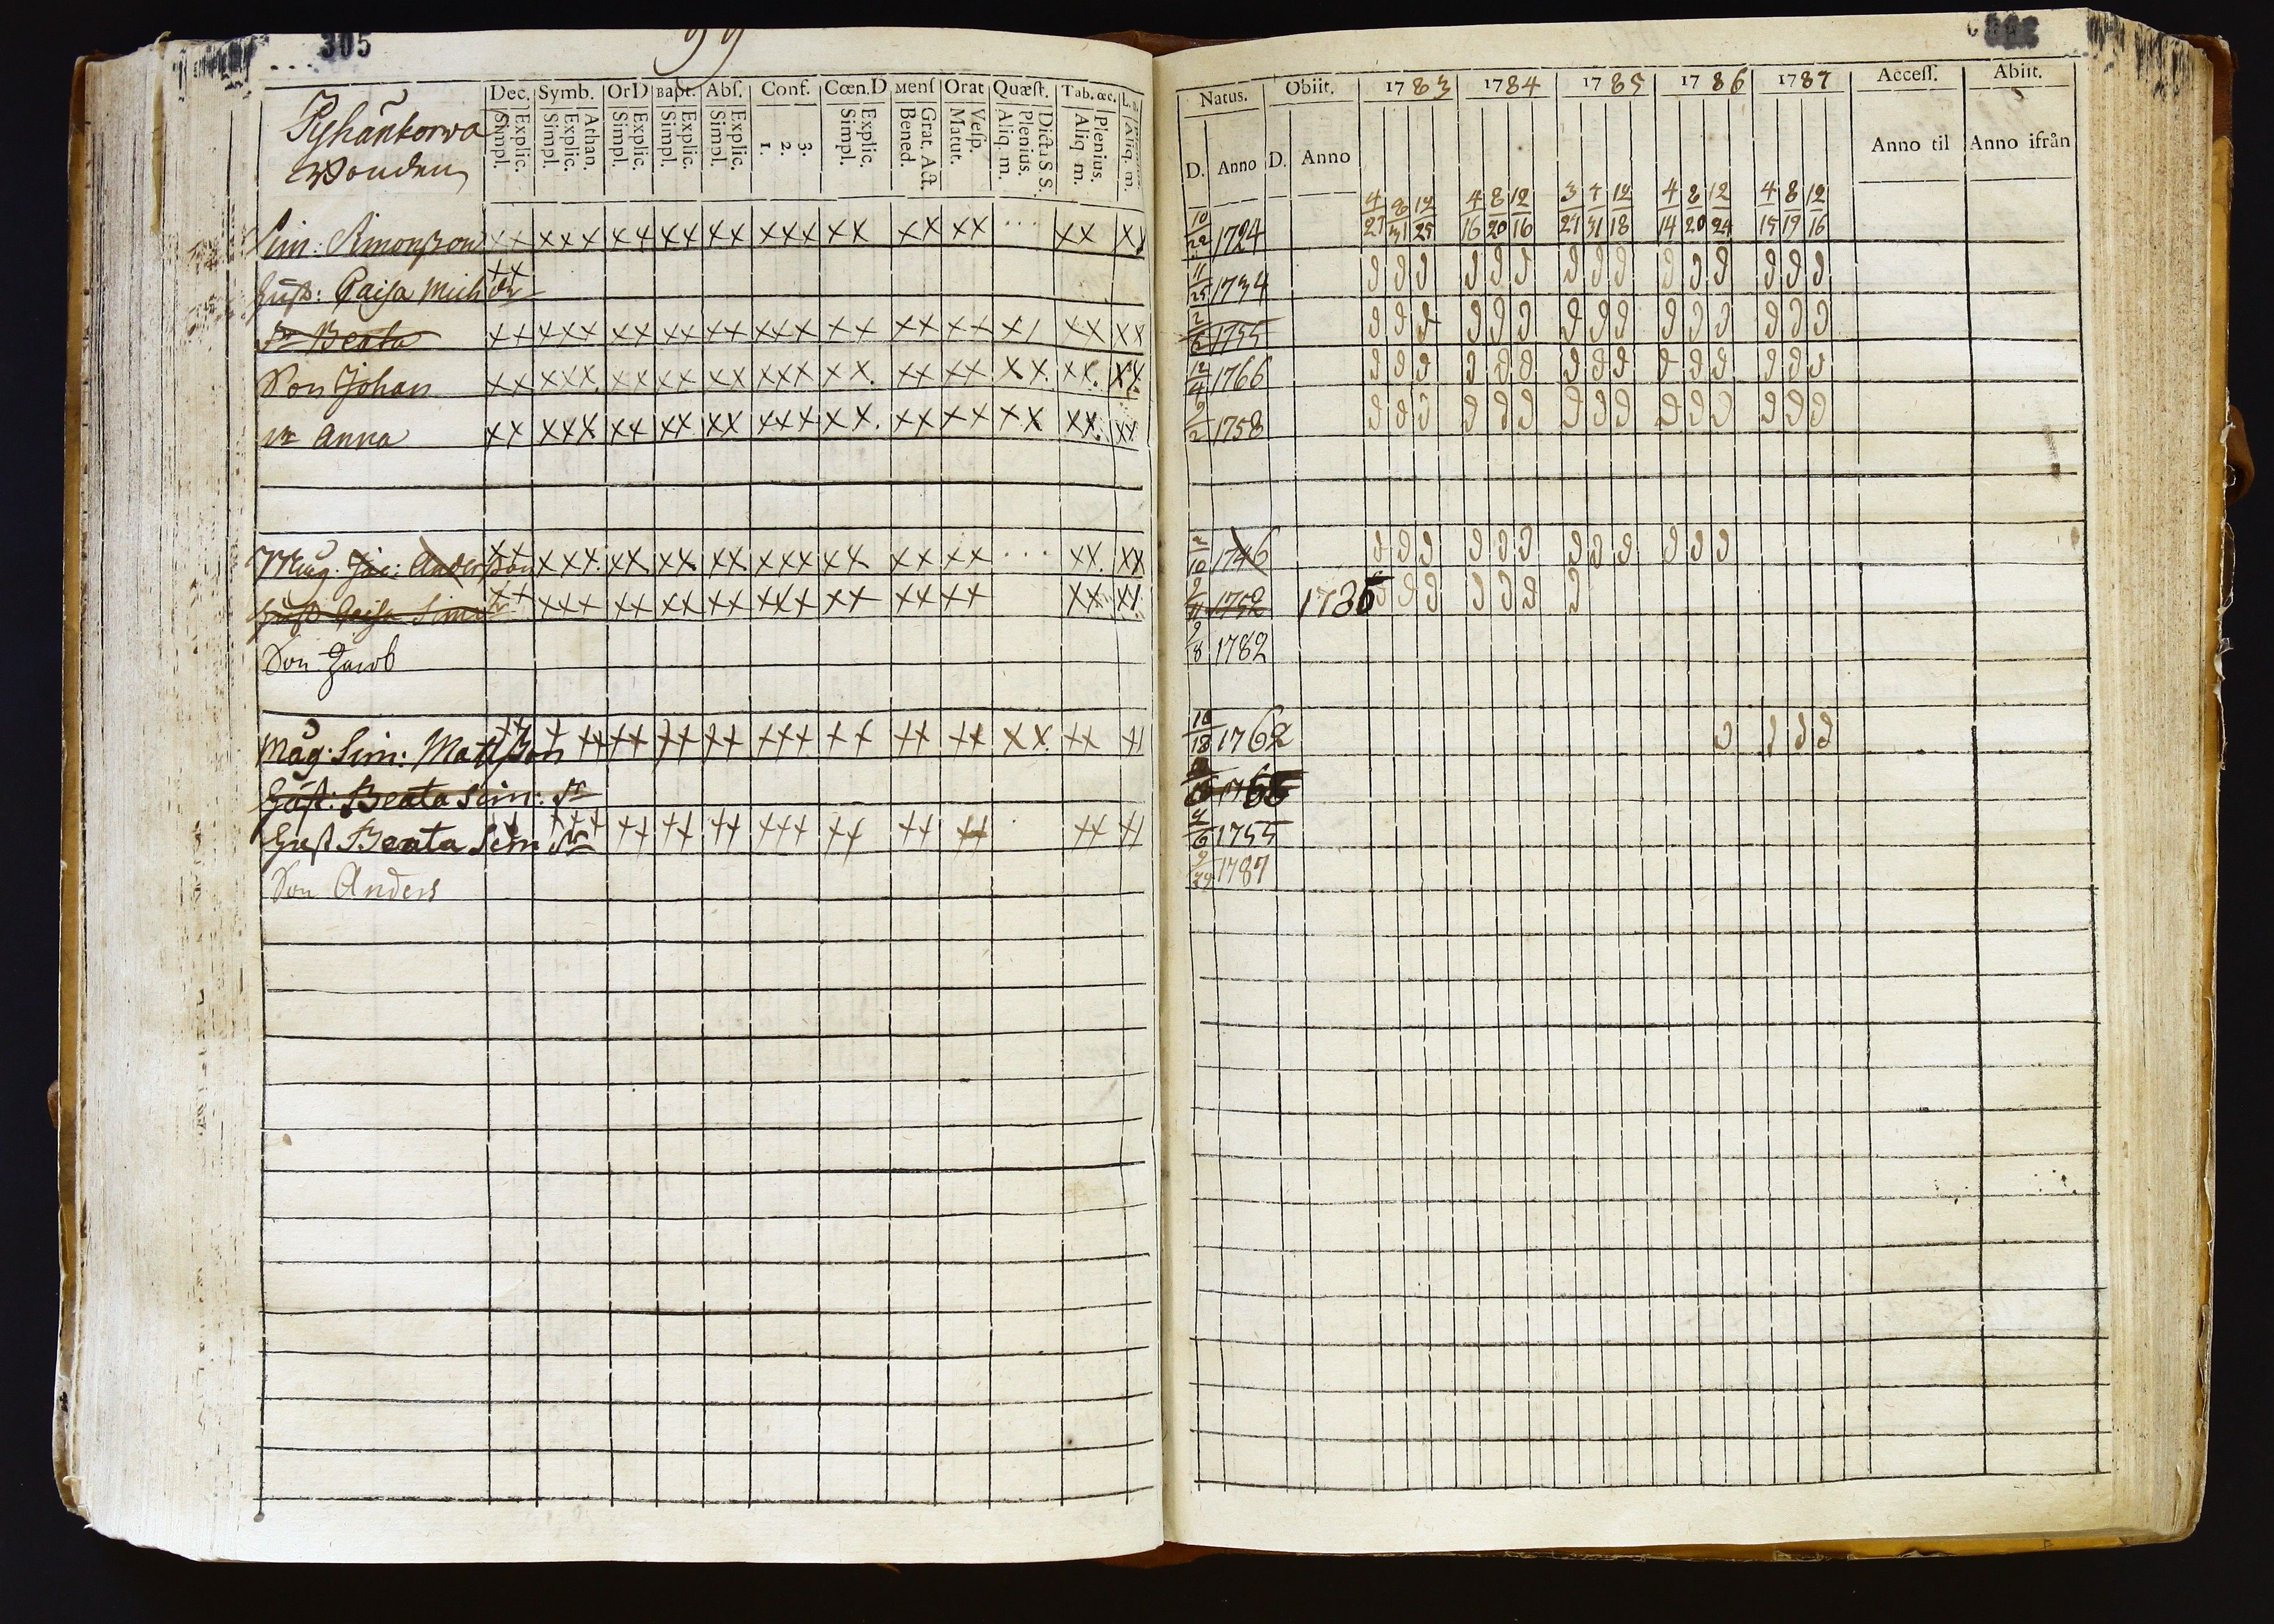 305
99
Pyhänkorwa
Wonden
Dec. Symb. OrD Bapt. Abs. Conf. Cœn.D Mens Orat Quæst. Tab. œc.
Simpl. Explic. Simpl. Explic. Athan. Simpl. Explic. Simpl. Explic. Simpl. Explic. 1. 2. 3. Simpl. Explic. Bened. Grat. Act. Matut. Vesp. Aliq. m. Plenius. Dicta S S. Aliq. m. Plenius. Aliq. m.
Sim: Simonzon xx xxx xx xx xx xxx xx xx xx xx xx
Hust: Caisa Mich dr xx
dr Beata xx xxx xx xx xx xxx xx xx xx xx xx xx
Son Johan xx xxx xx xx xx xxx xx. xx xx xx. xx. xx
dr Anna xx xxx xx xx xx xxx xx. xx xx xx xx. xx
Måg: Jac: Anderson xx xxx. xx xx xx xxx xx xx xx xx. xx
Hust Caisa Simdr xx xxx xx xx xx xxx xx xx xx xx xx
Son Jacob
Måg: Sim: Mattson xx xxx xx xx xx xxx xx xx xx xx xx xx
Hust: Beata Sim: dr
Hust Beata Sim dr xx xxx xx xx xx xxx xx xx xx xx xx
Son Anders
Natus. Obiit. 1783 1784 1785 1786 1787 Access. Abiit.
D. Anno D. Anno Anno til Anno ifrån
4/27 8/31 12/25 4/16 8/20 12/16 3/27 7/31 12/18 4/14 8/20 12/24 4/15 8/19 12/16
10/22 1724
11/25 1734
2/6 1755
12/4 1766
9/2 1758
2/10 1746
9/11 1752 1785
9/8 1782
10/18 1762
1755
2/6 1755
9/29 1787